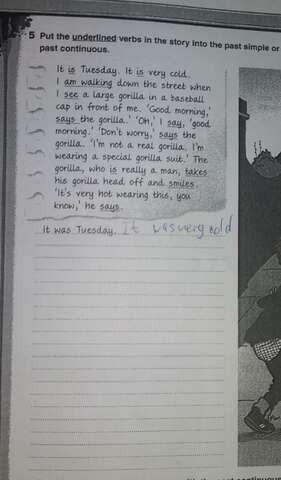 5 Put the underlined verbs in the story into the past simple or
past continuous.
It is Tuesday. It is very cold.
I am walking down the street when
I see a large gorilla in a baseball
cap in front of me. 'Good morning,'
says the gorilla.' 'Oh,' I say, 'good
morning.' 'Don't worry,' says the
gorilla. 'I'm not a real gorilla. I'm
wearing a special gorilla suit.' The
gorilla, who is really a man, takes
his gorilla head off and smiles.
'It's very hot wearing this, you
know,' he says.
It was Tuesday. It was very cold